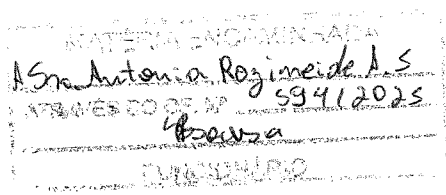 MATÉRIA ENCAMINHADA
A Sra. Antonia Rozimeide A. S
ATRAVÉS DO OF. Nº 594/2025
FUNCIONÁRIO